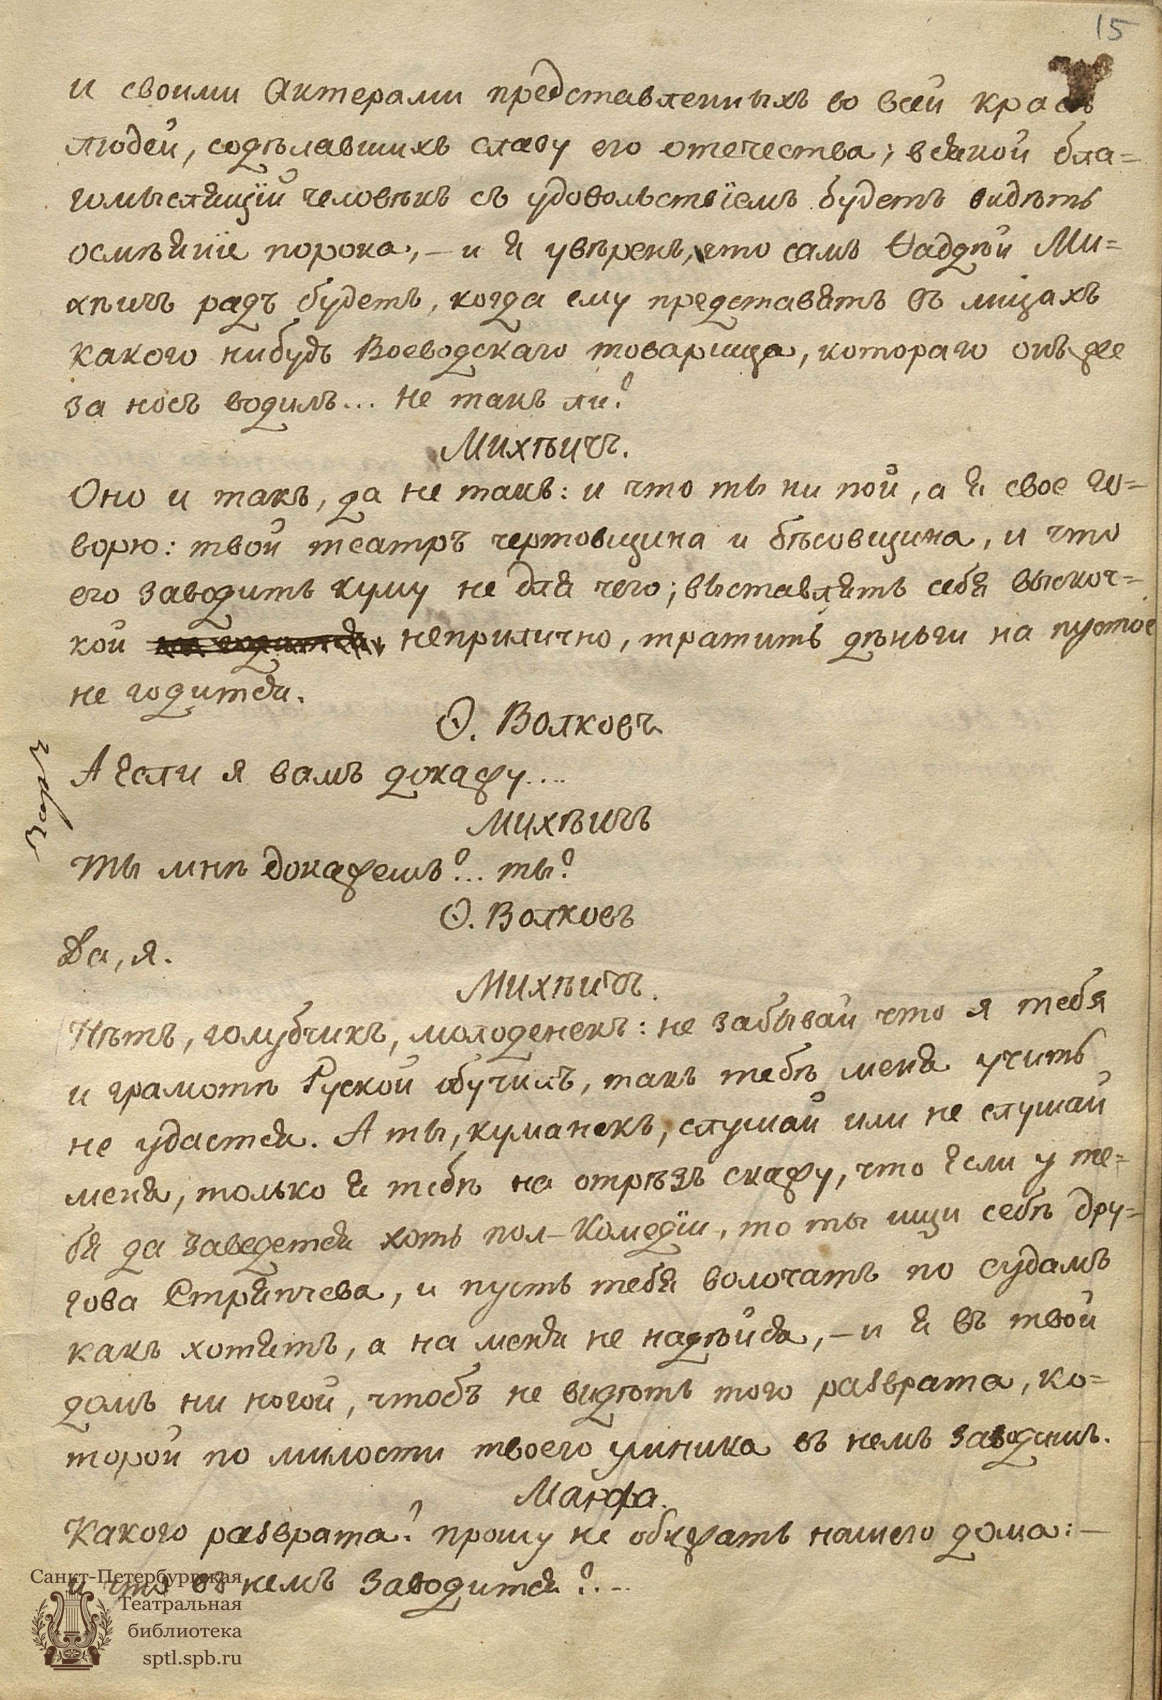 15
и своими Актерами представленныхъ во всей красѣ
людей, содѣлавшихъ славу его отечества; всякой бла=
гомыслящій человѣкъ съ удовольствіемъ будетъ видѣть
осмѣяніе порока, — и я увѣренъ, что самъ Ѳаддѣй Ми=
хѣичъ радъ будетъ, когда ему представятъ въ лицахъ
какого нибудь Воеводскаго товарища, котораго онъ же
за носъ водилъ... не такъ ли?
Михѣичъ.
Оно и такъ, да не такъ: и что ты ни пой, а я свое го=
ворю: твой театръ чертовщина и бѣсовщина, и что
его заводить куму не для чего; выставлять себя выскоч=
кой неприлично, тратить дѣньги на пустое
не годится.
Ѳ. Волковъ
А если я вамъ докажу....
Михѣичъ
Ты мнѣ докажешъ?.. ты?
Ѳ. Волковъ
Да, я.
Михѣичъ.
Нѣтъ, голубчикъ, молоденекъ: не забывай что я тебя
и грамотѣ Руской обучилъ, такъ тебѣ меня учить
не удастся. А ты, куманекъ, слушай или не слушай
меня, только я тебѣ на отрѣзъ скажу, что если у те=
бя да заведется хоть пол-Комедіи, то ты ищи себѣ дру=
гова Стряпчева, и пусть тебя волочатъ по судамъ
какъ хотятъ, а на меня не надѣйся, — и я въ твой
домъ ни ногой, чтобъ не видѣть того разврата, ко=
торой по милости твоего умника въ немъ заводится.
Марфа.
Какого разврата? прошу не обижать нашего дома: —
и что въ немъ заводится?..
Санкт-Петербургская
Театральная
библиотека
sptl.spb.ru